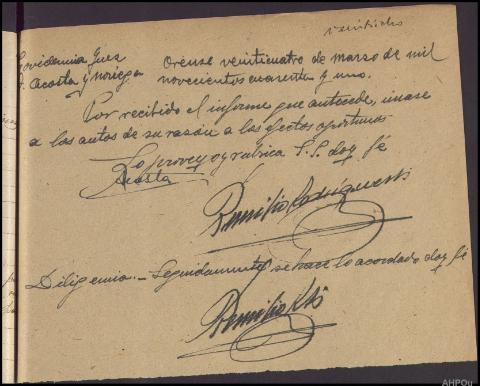 veintiocho
Providencia Juez
Sr. Acosta y Noriega
Orense veinticuatro de marzo de mil
novecientos cuarenta y uno.
Por recibido el informe que antecede, únase
a los autos de su razón a los efectos oportunos
Lo proveyo y rubrica S.S. doy fé
Acosta
Remilio Rodriguez
Diligencia.- Seguidamente se hace lo acordado doy fé
Remilio
AHPOu